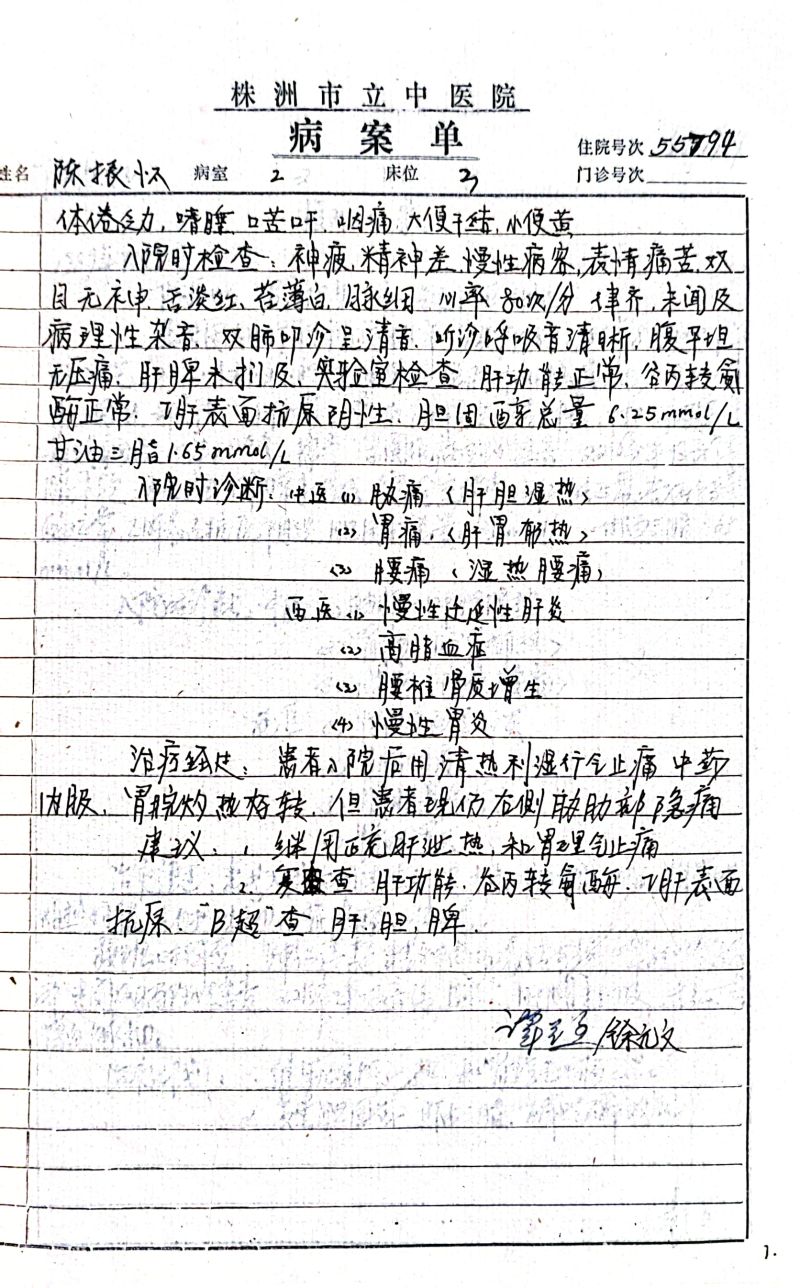 株洲市立中医院
病案单
住院号次 55794
姓名 陈振怀 病室 2 床位 3 门诊号次
体倦乏力,嗜睡 口苦口干,咽痛,大便干结,小便黄
入院时检查:神疲,精神差,慢性病容,表情痛苦,双
目无神,舌淡红,苔薄白,脉细 心率80次/分 律齐,未闻及
病理性杂音,双肺叩诊呈清音,听诊呼吸音清晰,腹平坦
无压痛,肝脾未扪及,实验室检查 肝功能正常,谷丙转氨
酶正常,乙肝表面抗原阴性,胆固醇总量 6.25mmol/L
甘油三脂1.65mmol/L
入院时诊断:中医(1)胁痛(肝胆湿热)
(2)胃痛(肝胃郁热)
(3)腰痛(湿热腰痛)
西医(1)慢性迁延性肝炎
(2)高脂血症
(3)腰椎骨质增生
(4)慢性胃炎
治疗经过:患者入院后用清热利湿行气止痛中药
内服,胃脘灼热好转,但患者现仍右侧胁肋部隐痛
建议:1 继用疏肝泄热,和胃理气止痛
2 复查 肝功能,谷丙转氨酶,乙肝表面
抗原,"B超"查 肝,胆,脾.
/徐元文
1.